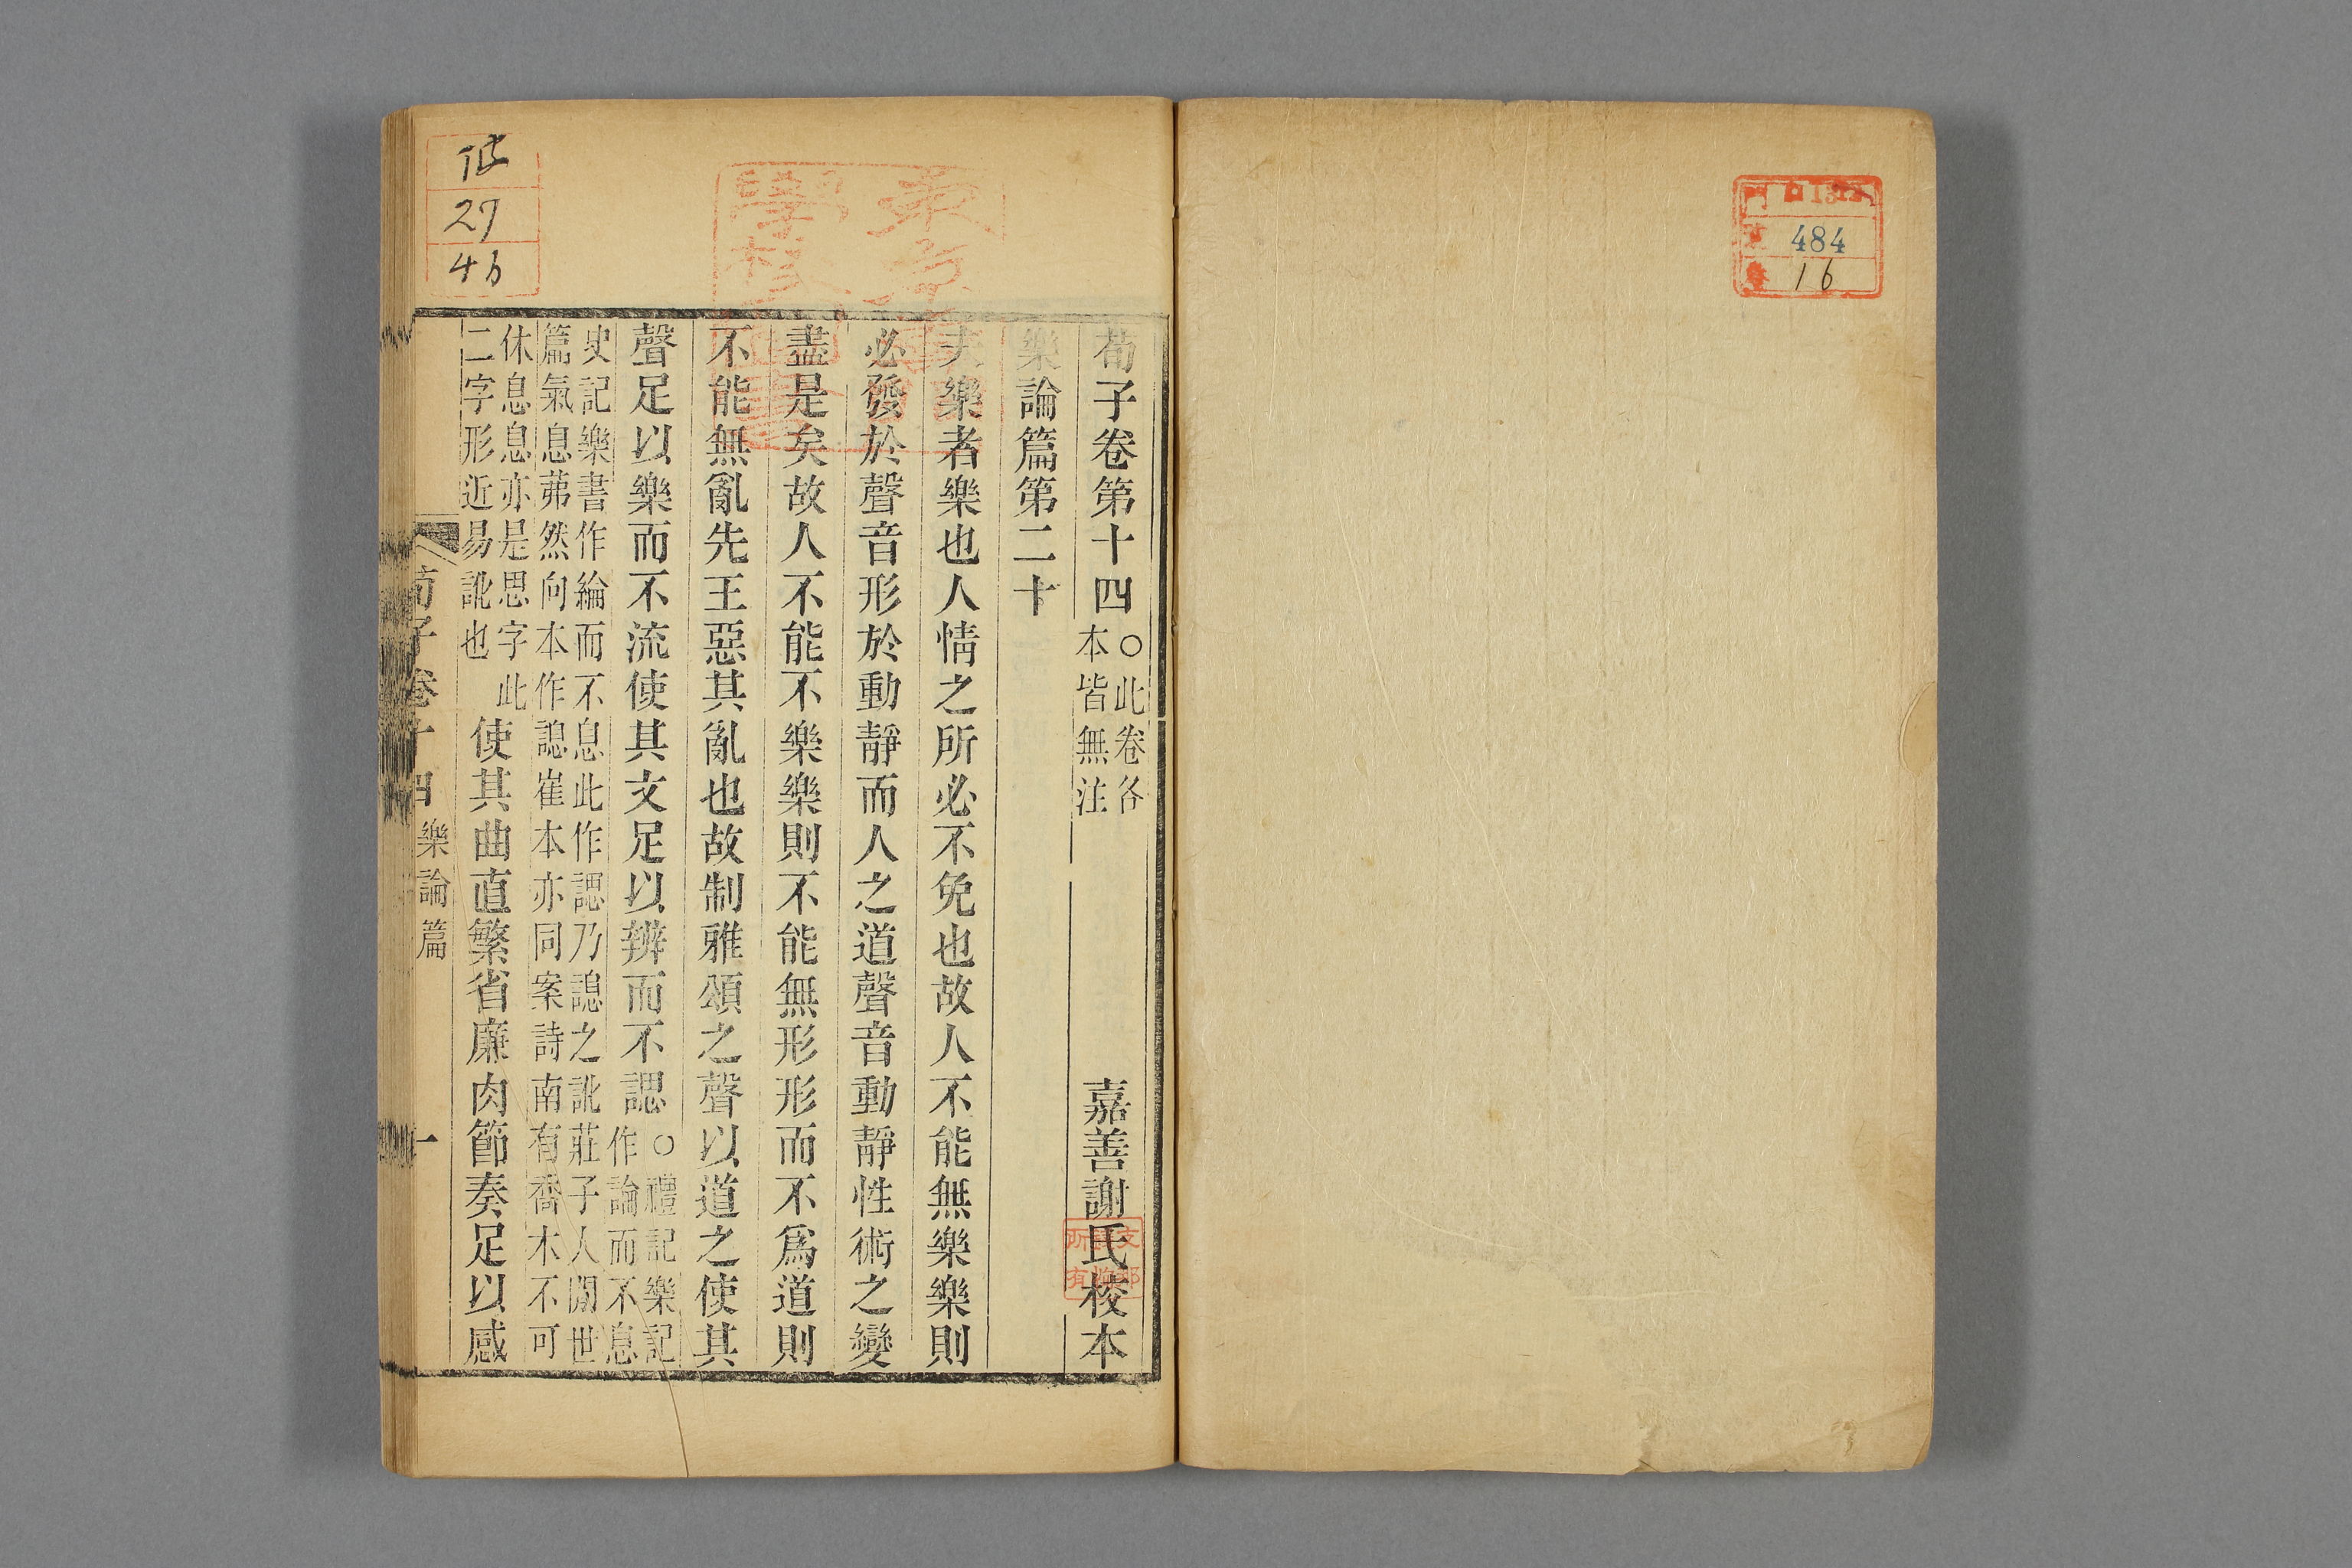 484
16
27
荀子卷第十四 ○此卷各本皆無注 嘉善謝氏校本
樂論篇第二十
夫樂者樂也人情之所必不免也故人不能無樂樂則
必發於聲音形於動靜而人之道聲音動靜性術之變
盡是矣故人不能不樂樂則不能無形形而不爲道則
不能無亂先王惡其亂也故制雅頌之聲以道之使其
聲足以樂而不流使其文足以辨而不諰 ○禮記樂記作論而不息
史記樂書作綸而不息此作諰乃諰之訛莊子人閒世
篇氣息茀然向本作諰崔本亦同案詩南有喬木不可
休息息亦是思字此
二字形近易訛也 使其曲直繁省廉肉節奏足以感
荀子卷十四 樂論篇 一